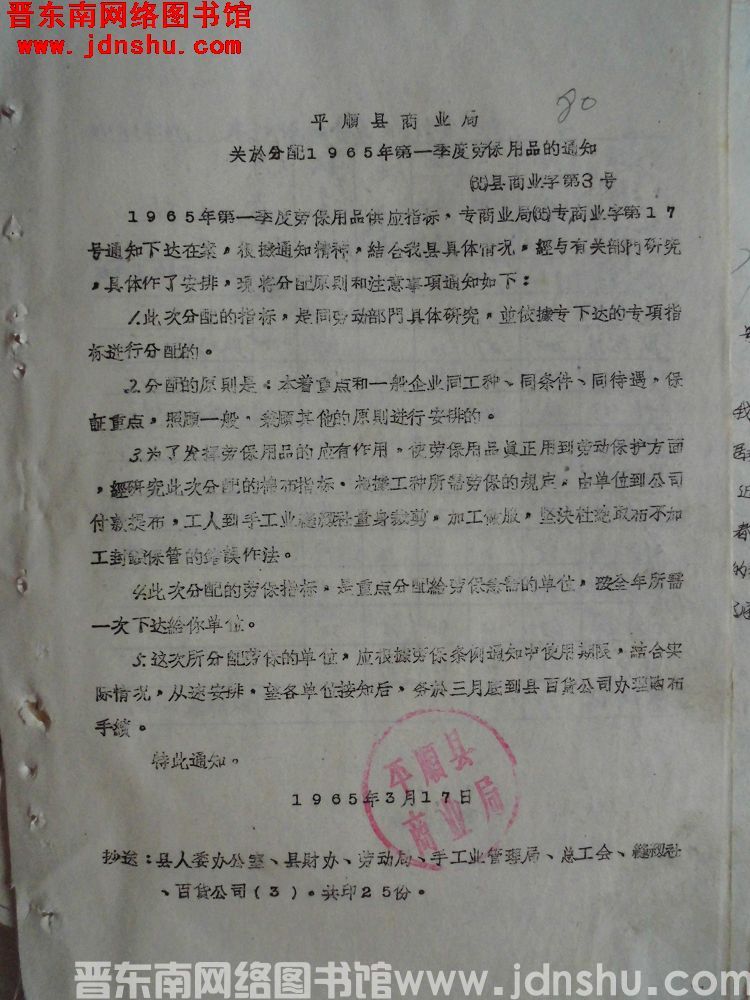 晋东南网络图书馆
www.jdnshu.com
80
平順县商业局
关於分配1965年第一季度劳保用品的通知
(65)县商业字第3号
1965年第一季度劳保用品供应指标，专商业局(65)专商业字第17
号通知下达在案，根據通知精神，結合我县具体情况，經与有关部門研究
，具体作了安排，現将分配原則和注意事項通知如下：
1.此次分配的指标，是同劳动部門具体研究，並依據专下达的专項指
标进行分配的。
2.分配的原則是：本着重点和一般企业同工种、同条件、同待遇，保
証重点，照顧一般，兼顧其他的原則进行安排的。
3.为了发挥劳保用品的应有作用，使劳保用品眞正用到劳动保护方面
，經研究此次分配的棉布指标，根據工种所需劳保的規定，由单位到公司
付款提布，工人到手工业縫紉社量身裁剪，加工做服，坚决杜絕取布不加
工到 保管的錯誤作法。
4.此次分配的劳保指标，是重点分配給劳保急需的单位，按全年所需
一次下达給你单位。
5.这次所分配劳保的单位，应根據劳保条例通知中使用期限，結合实
际情况，从速安排，望各单位接知后，务於三月底到县百貨公司办理購布
手續。
特此通知。
平順县
商业局
1965年3月17日
抄送：县人委办公室、县財办、劳动局、手工业管理局、总工会、縫紉社
、百貨公司(3)。共印25份。
我
的
晋东南网络图书馆www.jdnshu.com